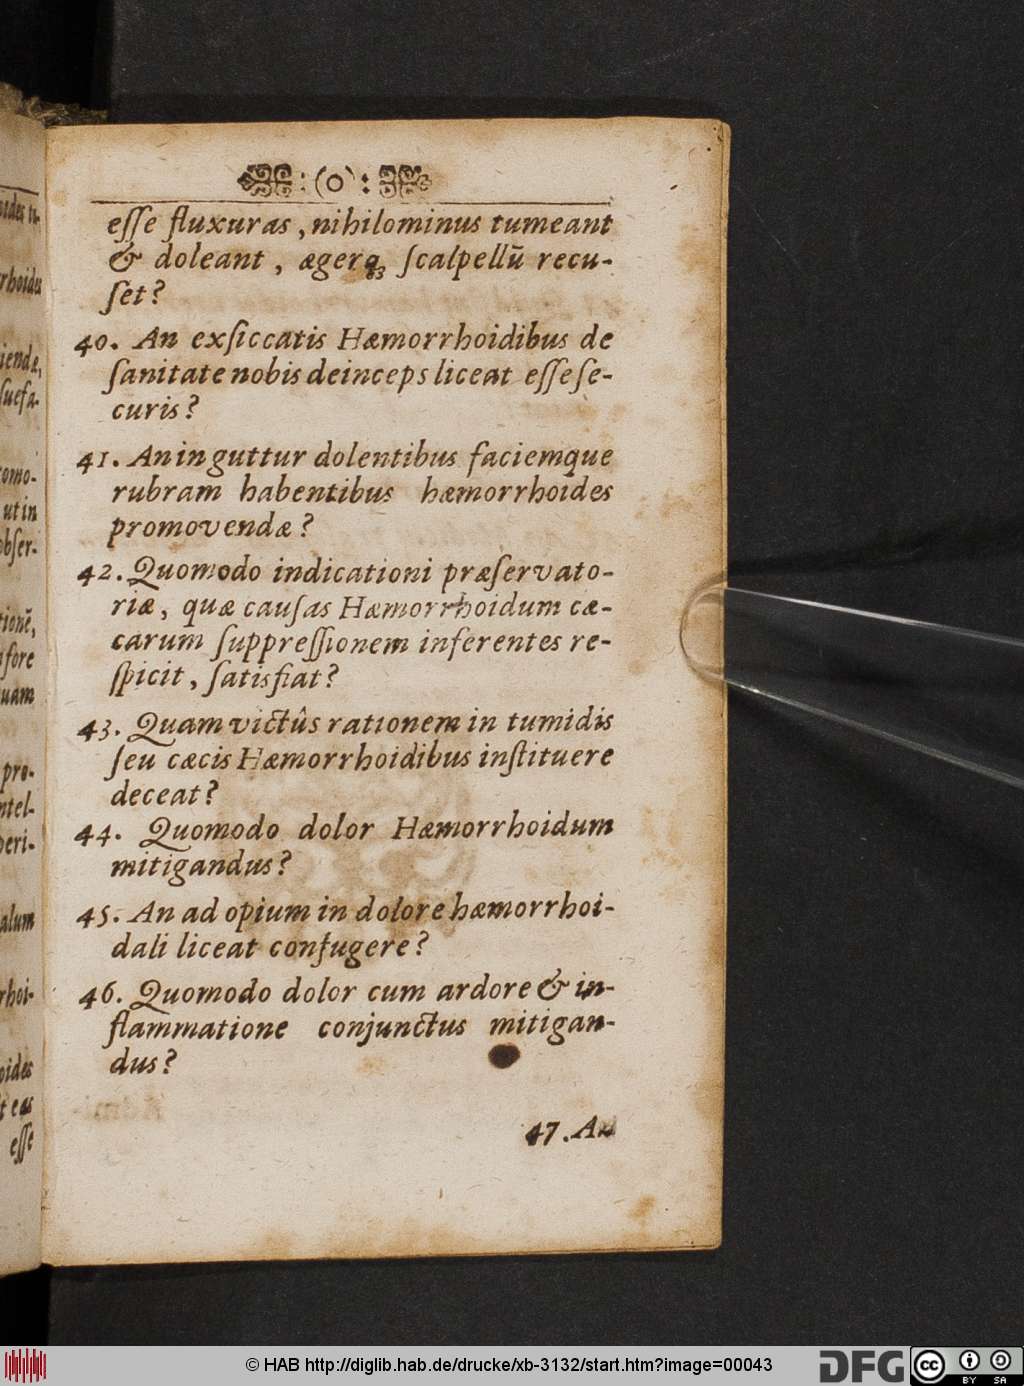 :(o):
esse fluxuras, nihilominus tumeant
& doleant, ægerq; scalpellũ recu-
set?
40. An exsiccatis Hæmorrhoidibus de
sanitate nobis deinceps liceat esse se-
curis?
41. An in guttur dolentibus faciemque
rubram habentibus hæmorrhoides
promovendæ?
42. Quomodo indicationi præservato-
riæ, quæ causas Hæmorrhoidum cæ-
carum suppressionem inferentes re-
spicit, satisfiat?
43. Quam victûs rationem in tumidis
seu cæcis Hæmorrhoidibus instituere
deceat?
44. Quomodo dolor Hæmorrhoidum
mitigandus?
45. An ad opium in dolore hæmorrhoi-
dali liceat confugere?
46. Quomodo dolor cum ardore & in-
flammatione conjunctus mitigan-
dus?
47. An
© HAB http://diglib.hab.de/drucke/xb-3132/start.htm?image=00043
DFG
cc BY SA